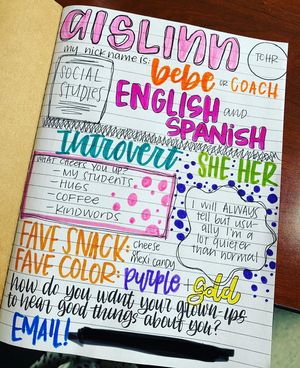 aislinn
TCHR
my nick name is: bebe or COACH
SOCIAL
STUDIES
ENGLISH and
SPANISH
Introvert SHE: HER
WHAT CHEERS YOU UP?
- MY STUDENTS
- HUGS
- COFFEE
- KINDWORDS
I will ALWAYS
tell but usu-
ally I'm a
lot quieter
than normal
FAVE SNACK: cheese + mexi candy
FAVE COLOR: purple + gold
how do you want your grown-ups
to hear good things about you?
EMAIL!